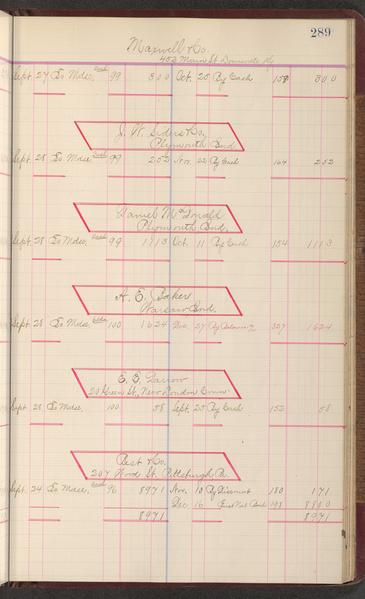 289
Maxwell & Co.
402 Main St
Sept. 27 To Mdse. 99 300 Oct. 25 By Cash 158 300
J. W. Siders & Co.
Plymouth Ind.
Sept. 28 To Mdse 99 252 Nov. 22 By Cash 164 252
Daniel McDonald
Plymouth Ind.
Sept. 28 To Mdse. 99 1113 Oct. 11 By Cash 154 1113
A. E. Baker
Warsaw Ind.
Sept. 28 To Mdse. 100 1624 27 By Balance 327 1624
E. E.
Green St., New London Conn.
Sept. 28 To Mdse. 100 58 Sept. 25 By Cash 152 58
Best & Co.
207 Wood St. Pittsburgh Pa.
Sept. 24 To Mdse. 96 8971 Nov. 10 By Discount 180 171
Dec 16 First Nat Bank 198 8800
8971 8971